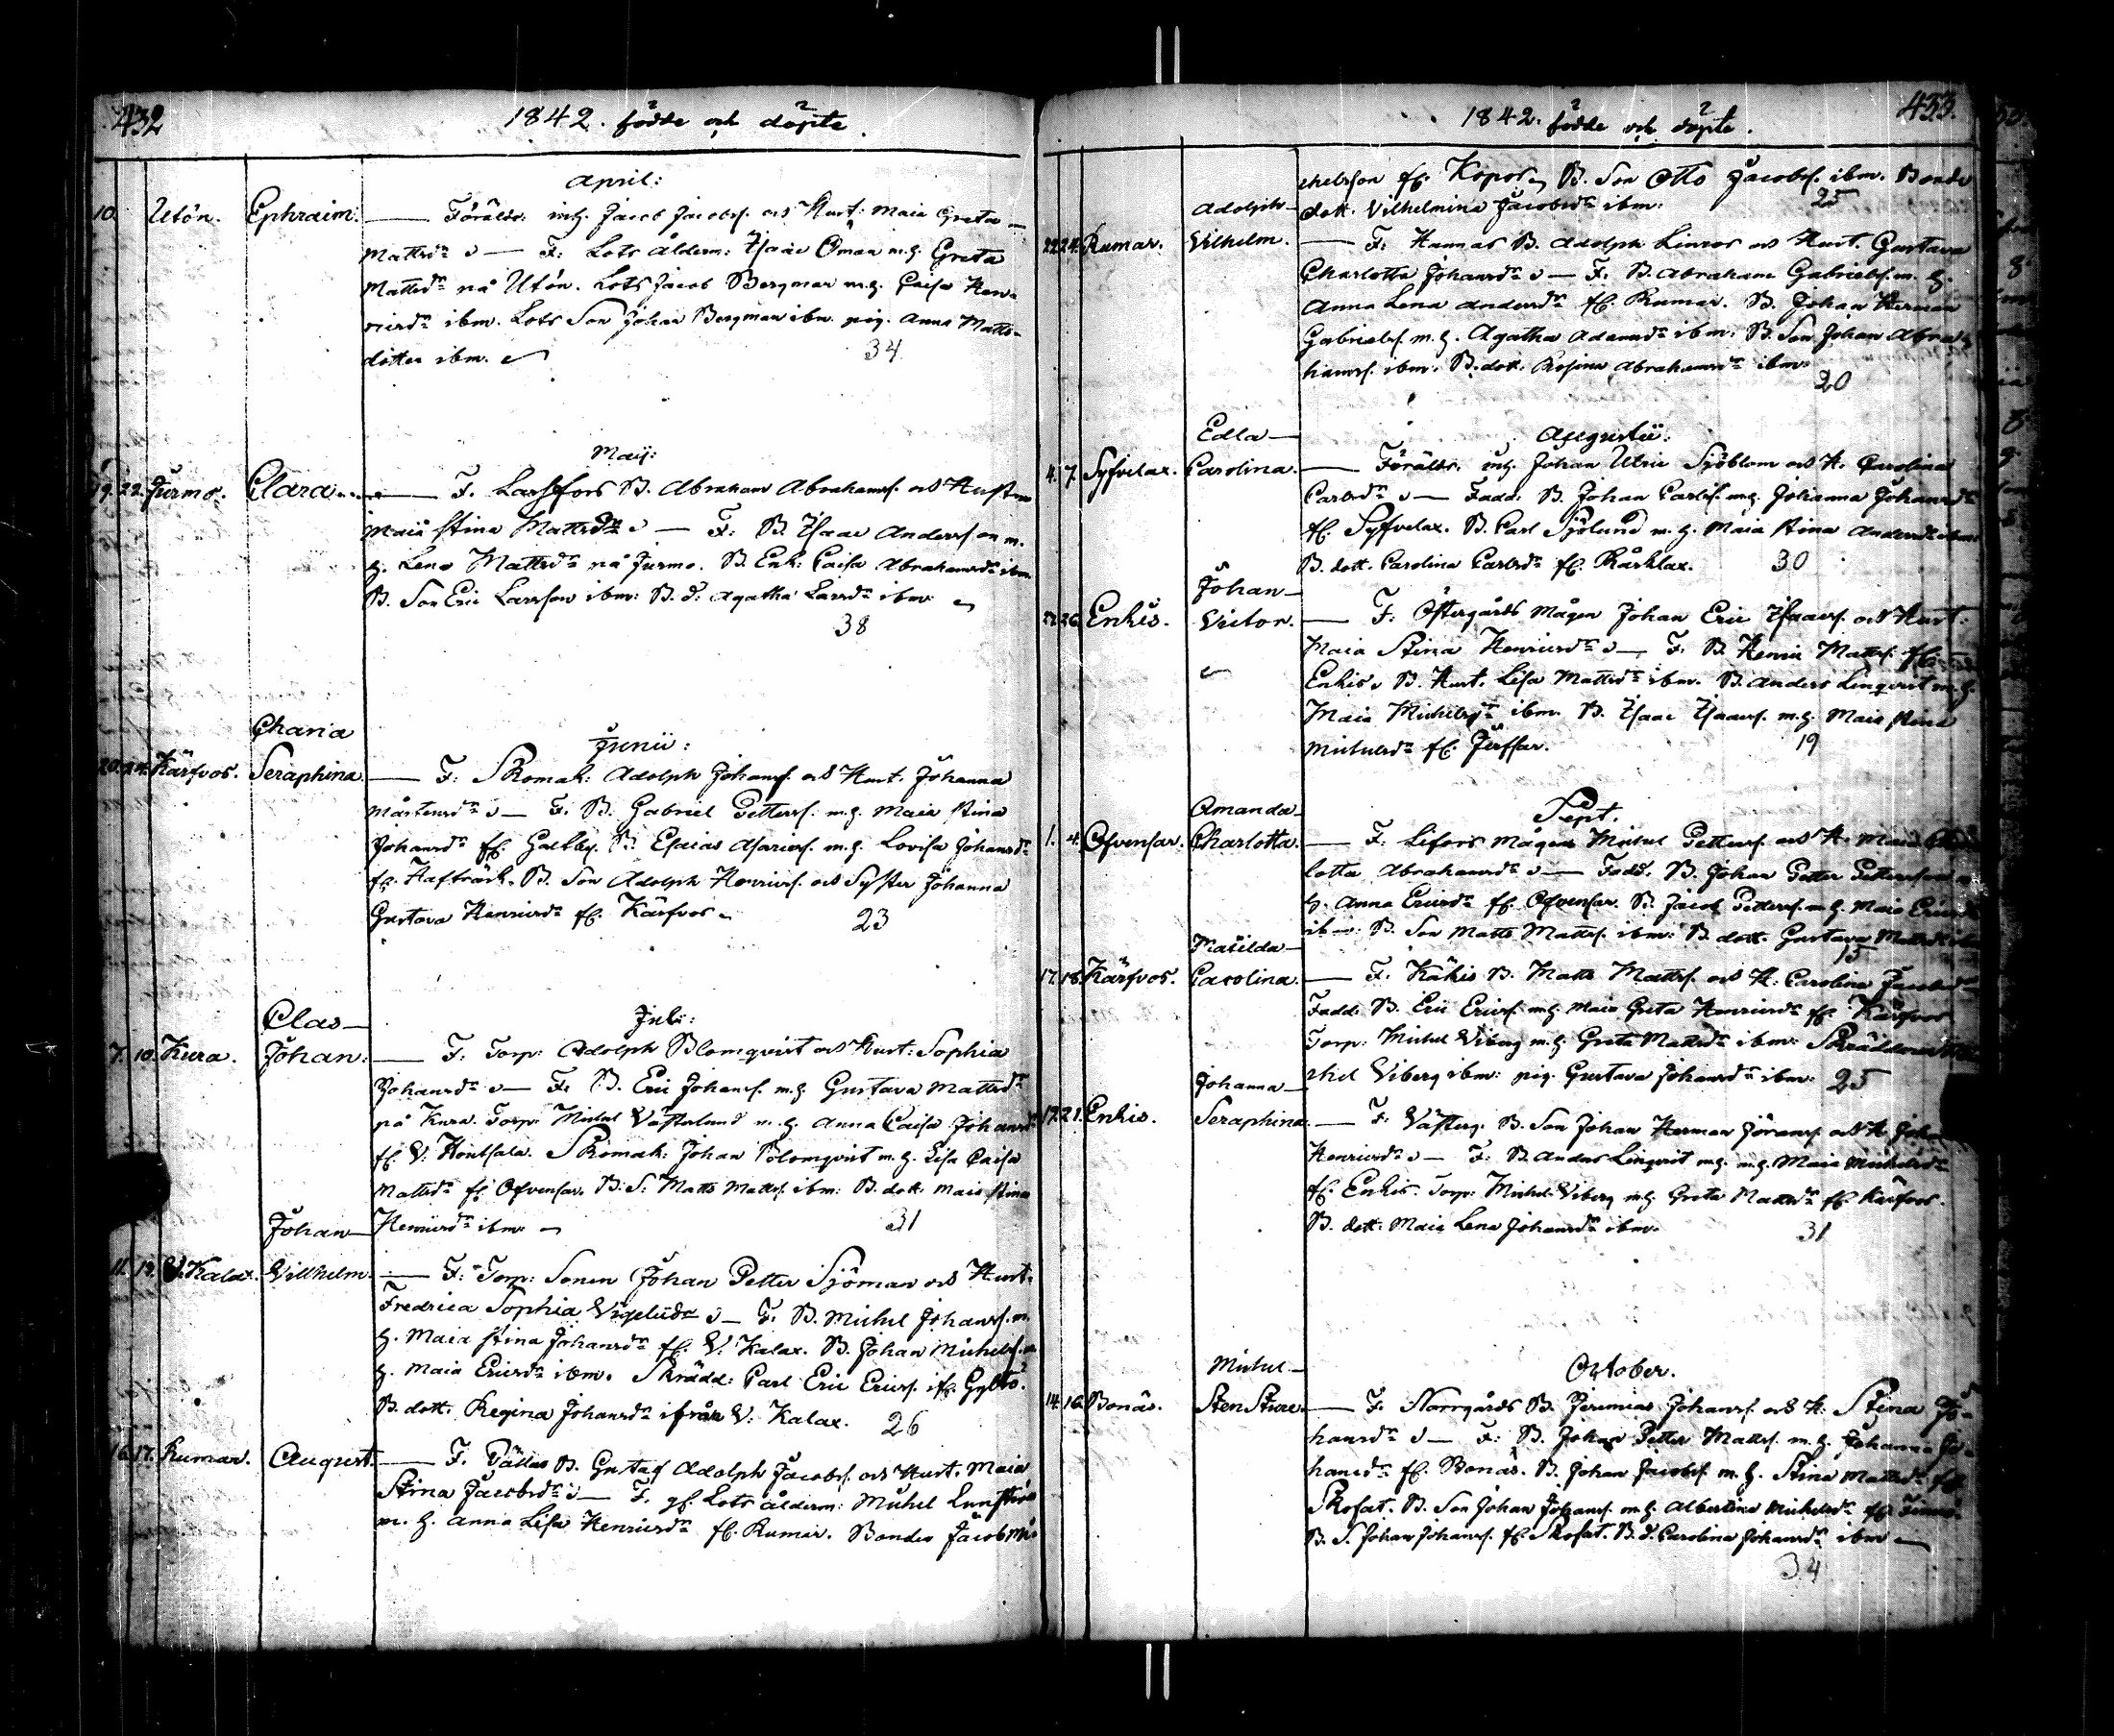 432
1842. födde och döpte.
April:
10. Utön. Ephraim. — Föräldr. inh. Jacob Jacobss. och Hust: Maia Greta
Mattsdr — F: Lots ålderm: Isaac Öman m.h. Greta
Mattsdr på Utön. Lots Jacob Bergman m.h. Caisa Hen-
ricsdr ibm. Lots Son Johan Bergman ibm. pig. Anna Matts-
dotter ibm.
34
Maij:
19. 22. Jurmo. Clara — F. Larsfors B. Abraham Abrahamss. och Hustru
Maia Stina Mattsdr — F: B. Isaac Andersson m.
h. Lena Mattsdr på Jurmo. B. Enk: Caisa Abrahamsdr ibm.
B. Son Eric Larsson ibm: B. d: Agatha Larsdr ibm.
38
Charia
Junii:
20. 24. Kärfvos. Seraphina — F: Skomak: Adolph Johanss. och Hust. Johanna
Mårtensdr — F: B. Gabriel Petterss. m.h. Maia Stina
Johansdr fr. Galtby. B. Esaias Asariess. m.h. Lovisa Johansdr
fr. Hafträsk. B. Son Adolph Henricss. och Syster Johanna
Gustava Henricsdr fr. Kärfvos
23
Clas —
Juli:
7. 10. Kura. Johan: — F: Torp: Adolph Blomqvist och Hust: Sophia
Johansdr — F: B. Eric Johanss. m.h. Gustava Mattsdr
på Kura. Torp: Michel Västerlund m.h. Anna Caisa Johansdr
fr. V: Hontsala. Skomak: Johan Blomqvist m.h. Lisa Caisa
Mattsdr fr. Ofvensar. B. S: Matts Mattss. ibm: B. dott: Maia Stina
Johan — Henricsdr ibm.
31
11. 12. V. Kalax. Villhelm. — F: Torp: Sonen Johan Petter Sjöman och Hust.
Fredrica Sophia — F: B. Michel Johanss. m.
h. Maia Stina Johansdr fr. V. Kalax. B. Johan Michelss. m
h. Maia Ericsdr ibm. Skrädd: Carl Eric Ericss. ifr. Gyltö.
B. dott. Regina Johansdr ifrån V: Kalax.
26
16. 17. Rumar. August. — F. Pällas B. Gustaf Adolph Jacobss. och Hust. Maia
Stina Jacobsdr — F. Lots ålderm: Michel
m. h. Anna Lisa Henricsdr fr. Rumar. Bonden Jacob Mi-
433.
1842. födde och döpte.
chelsson fr. Kopos B. Son Otto Jacobss. ibm. Bonde
Adolph — dott. Vilhelmina Jacobsdr ibm.
25
22. 24. Rumar. Vilhelm. — F: Hannas B. Adolph Linros och Hust. Gustava
Charlotta Johansdr — F: B. Abraham Gabrielss. m. h.
Anna Lena Andersdr fr. Rumar. B. Johan Herman
Gabrielss. m. h. Agatha Adamsdr ibm: B. Son Johan Abra-
hamss. ibm. B. dott. Rosina Abrahamsdr ibm.
20
Edla —
Augustii:
4. 7. Syfvelax. Carolina. — Föräldr. inh. Johan Ulric Sjöblom och H. Carolina
Carlsdr — Fadd: B. Johan Carlss. m.h. Johanna Johansdr
fr. Syfvelax. B. Carl Sjölund m. h. Maia Stina Andersdr ibm
B. dott. Carolina Carlsdr fr. Rårklax.
30
Johan —
26. Enkis. Victor. — F: Östergårds Mågen Johan Eric Isaacss. och Hust.
Maia Stina Henricsdr — F: B. Henric Mattss.
Enkis B. Hust. Lisa Mattsdr ibm. B. Anders Linqvist m. h.
Maia Michelsdr ibm. B. Isaac Isaacss. m.h. Maia Stina
Michelsdr fr. Jerfsar.
19
Amanda —
Sept.
1. 4. Ofvensar. Charlotta. — F. Lifors Mågen Michel Petterss. och H. Maia Char-
lotta Abrahamsdr — Fadd. B. Johan Petter Pettersson m
h. Anna Ericsdr fr. Ofvensar. B. Jacob Petterss. m.h. Maia
ibm: B. Son Matts Mattss. ibm: B. dott. Gustava Mattsdr
15
Matilda —
17. 18. Kärfvos. Carolina. — F. Käkis B. Matts Mattss. och H: Carolina Jacobsdr
Fadd: B. Eric Ericss. m.h. Maia Greta Henricsdr fr. Kärfvos
Torp: Michel Viberg m.h. Greta Mattsdr ibm: Skräddaren Mi-
chel Viberg ibm: pig. Gustava Johansdr ibm:
25
Johanna —
17. 21. Enkis. Seraphina. — F. Västerg. B. Son Johan Herman Jöranss. och H.
Henricsdr — F: B. Anders Linqvist m.h. Maia Michelsdr
fr. Enkis. Torp: Michel Viberg m.h. Greta Mattsdr fr. Kärfvos.
B. dott: Maia Lena Johansdr ibm.
31
Michel —
October.
14. 16. Bonäs. Sten Sture. — F. Norrgårds B. Jeremias Johanss. och H: Stina Jo-
hansdr — F: B. Johan Petter Mattss. m.h. Johanna Jo-
hansdr fr. Bonäs. B. Johan Jacobss. m. h. Stina Mattsdr fr.
Skofat. B. Son Johan Johanss. m.h. Albertina Michelsdr fr.
B. S. Johan Johanss. fr. Skofat. B. d. Carolina Johansdr ibm —
34